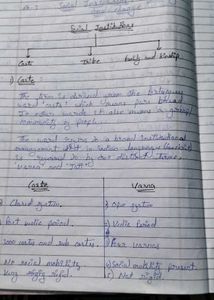 Social Institutions
Caste Tribe Family and Kinship
1) Caste
The term is derived from the Portuguese
word 'casta' which means pure breed
In other words it also means a group/
community of people.
The word varna is a broad institutional
arrangement that in Indian language (Sanskrit)
is referred to by two distinct terms,
'varna' and 'jati'.
Caste Varna
Closed system. Open system
Post vedic period. Vedic Period
3000 castes and sub castes. Four varnas
No social mobility Social mobility present
Very highly rigid. Not rigid